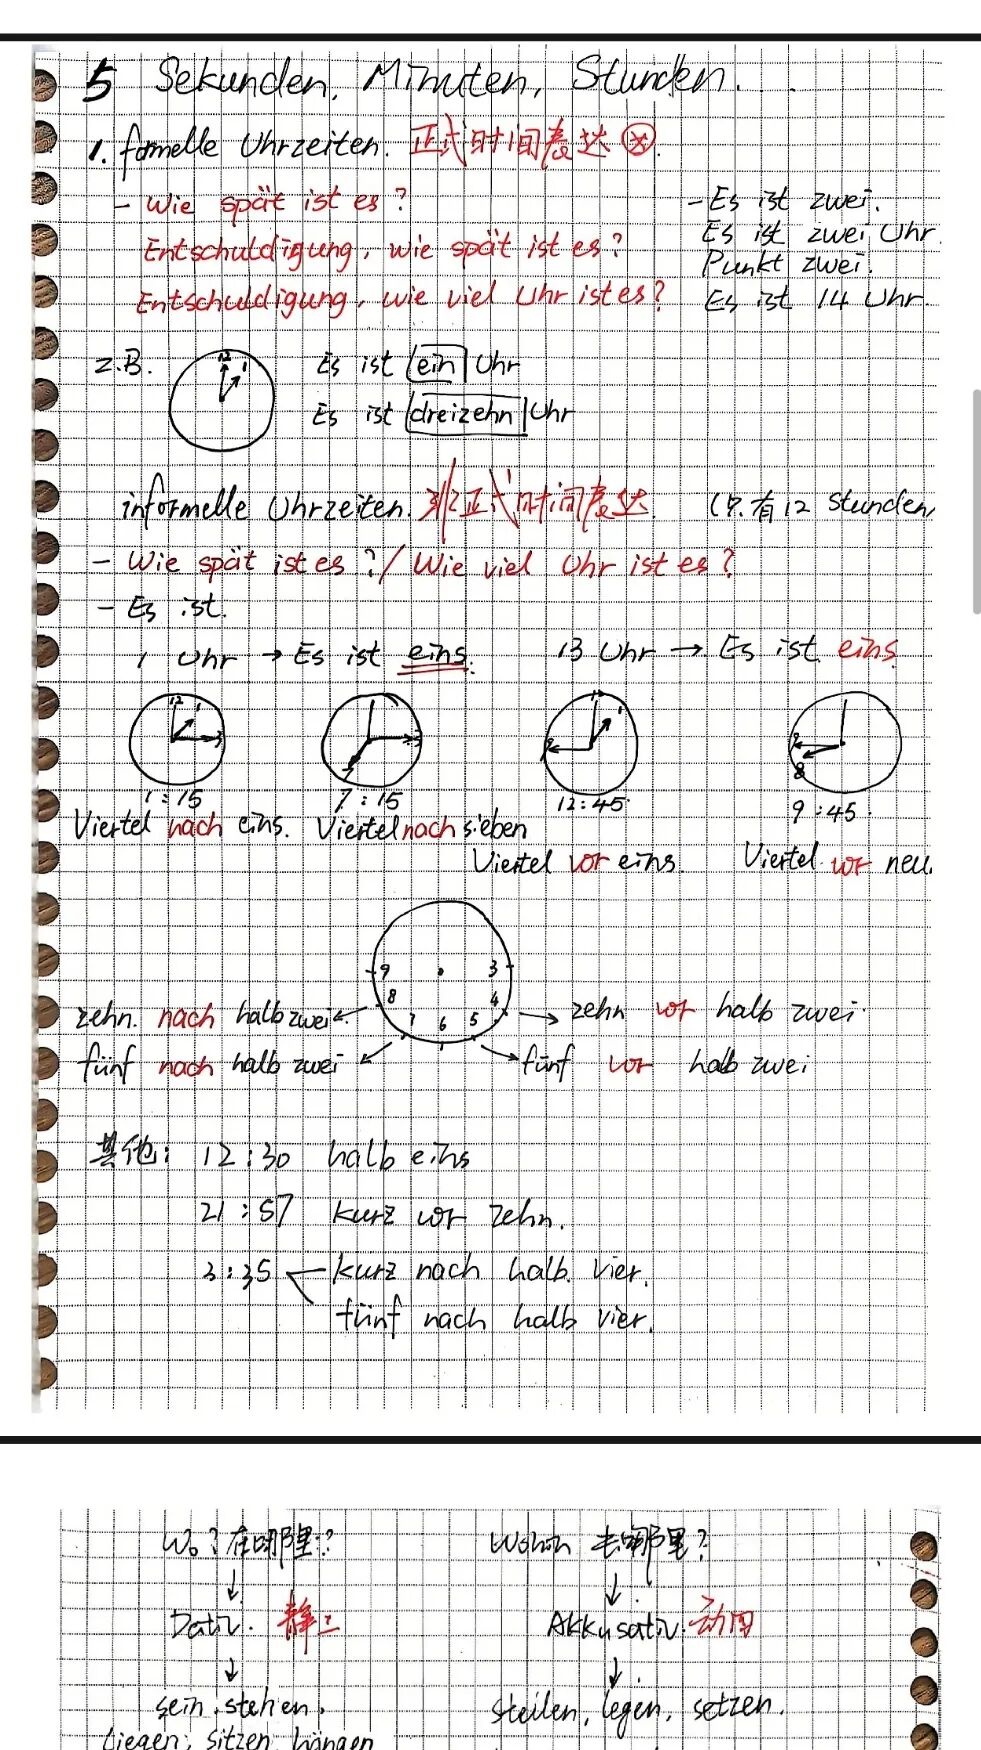 5 Sekunden, Minuten, Stunden.
1. formelle Uhrzeiten. 正式时间表达
- Wie spät ist es?
Entschuldigung, wie spät ist es?
Entschuldigung, wie viel Uhr ist es?
- Es ist zwei.
Es ist zwei Uhr.
Punkt zwei.
Es ist 14 Uhr.
z.B.
12 1
Es ist ein Uhr
Es ist dreizehn Uhr
informelle Uhrzeiten. 非正式时间表达. (只有12 Stunden,
- Wie spät ist es?/ Wie viel Uhr ist es?
- Es ist.
1 Uhr → Es ist eins. 13 Uhr → Es ist eins.
12 1 3
7 3
12 1 9
9 8
1:15 7:15 12:45. 9:45.
Viertel nach eins. Viertel nach sieben
Viertel vor eins. Viertel vor neu.
9 3
8 4
7 6 5
zehn. nach halb zwei. zehn vor halb zwei.
fünf nach halb zwei fünf vor halb zwei
其他: 12:30 halb eins
21:57 kurz vor zehn.
3:35 kurz nach halb. vier.
fünf nach halb vier.
Wo? 在哪里? Wohin 去哪里?
↓ ↓
Dativ. Akkusativ.
↓ ↓
sein. stehen. stellen, legen, setzen.
liegen, sitzen, hängen